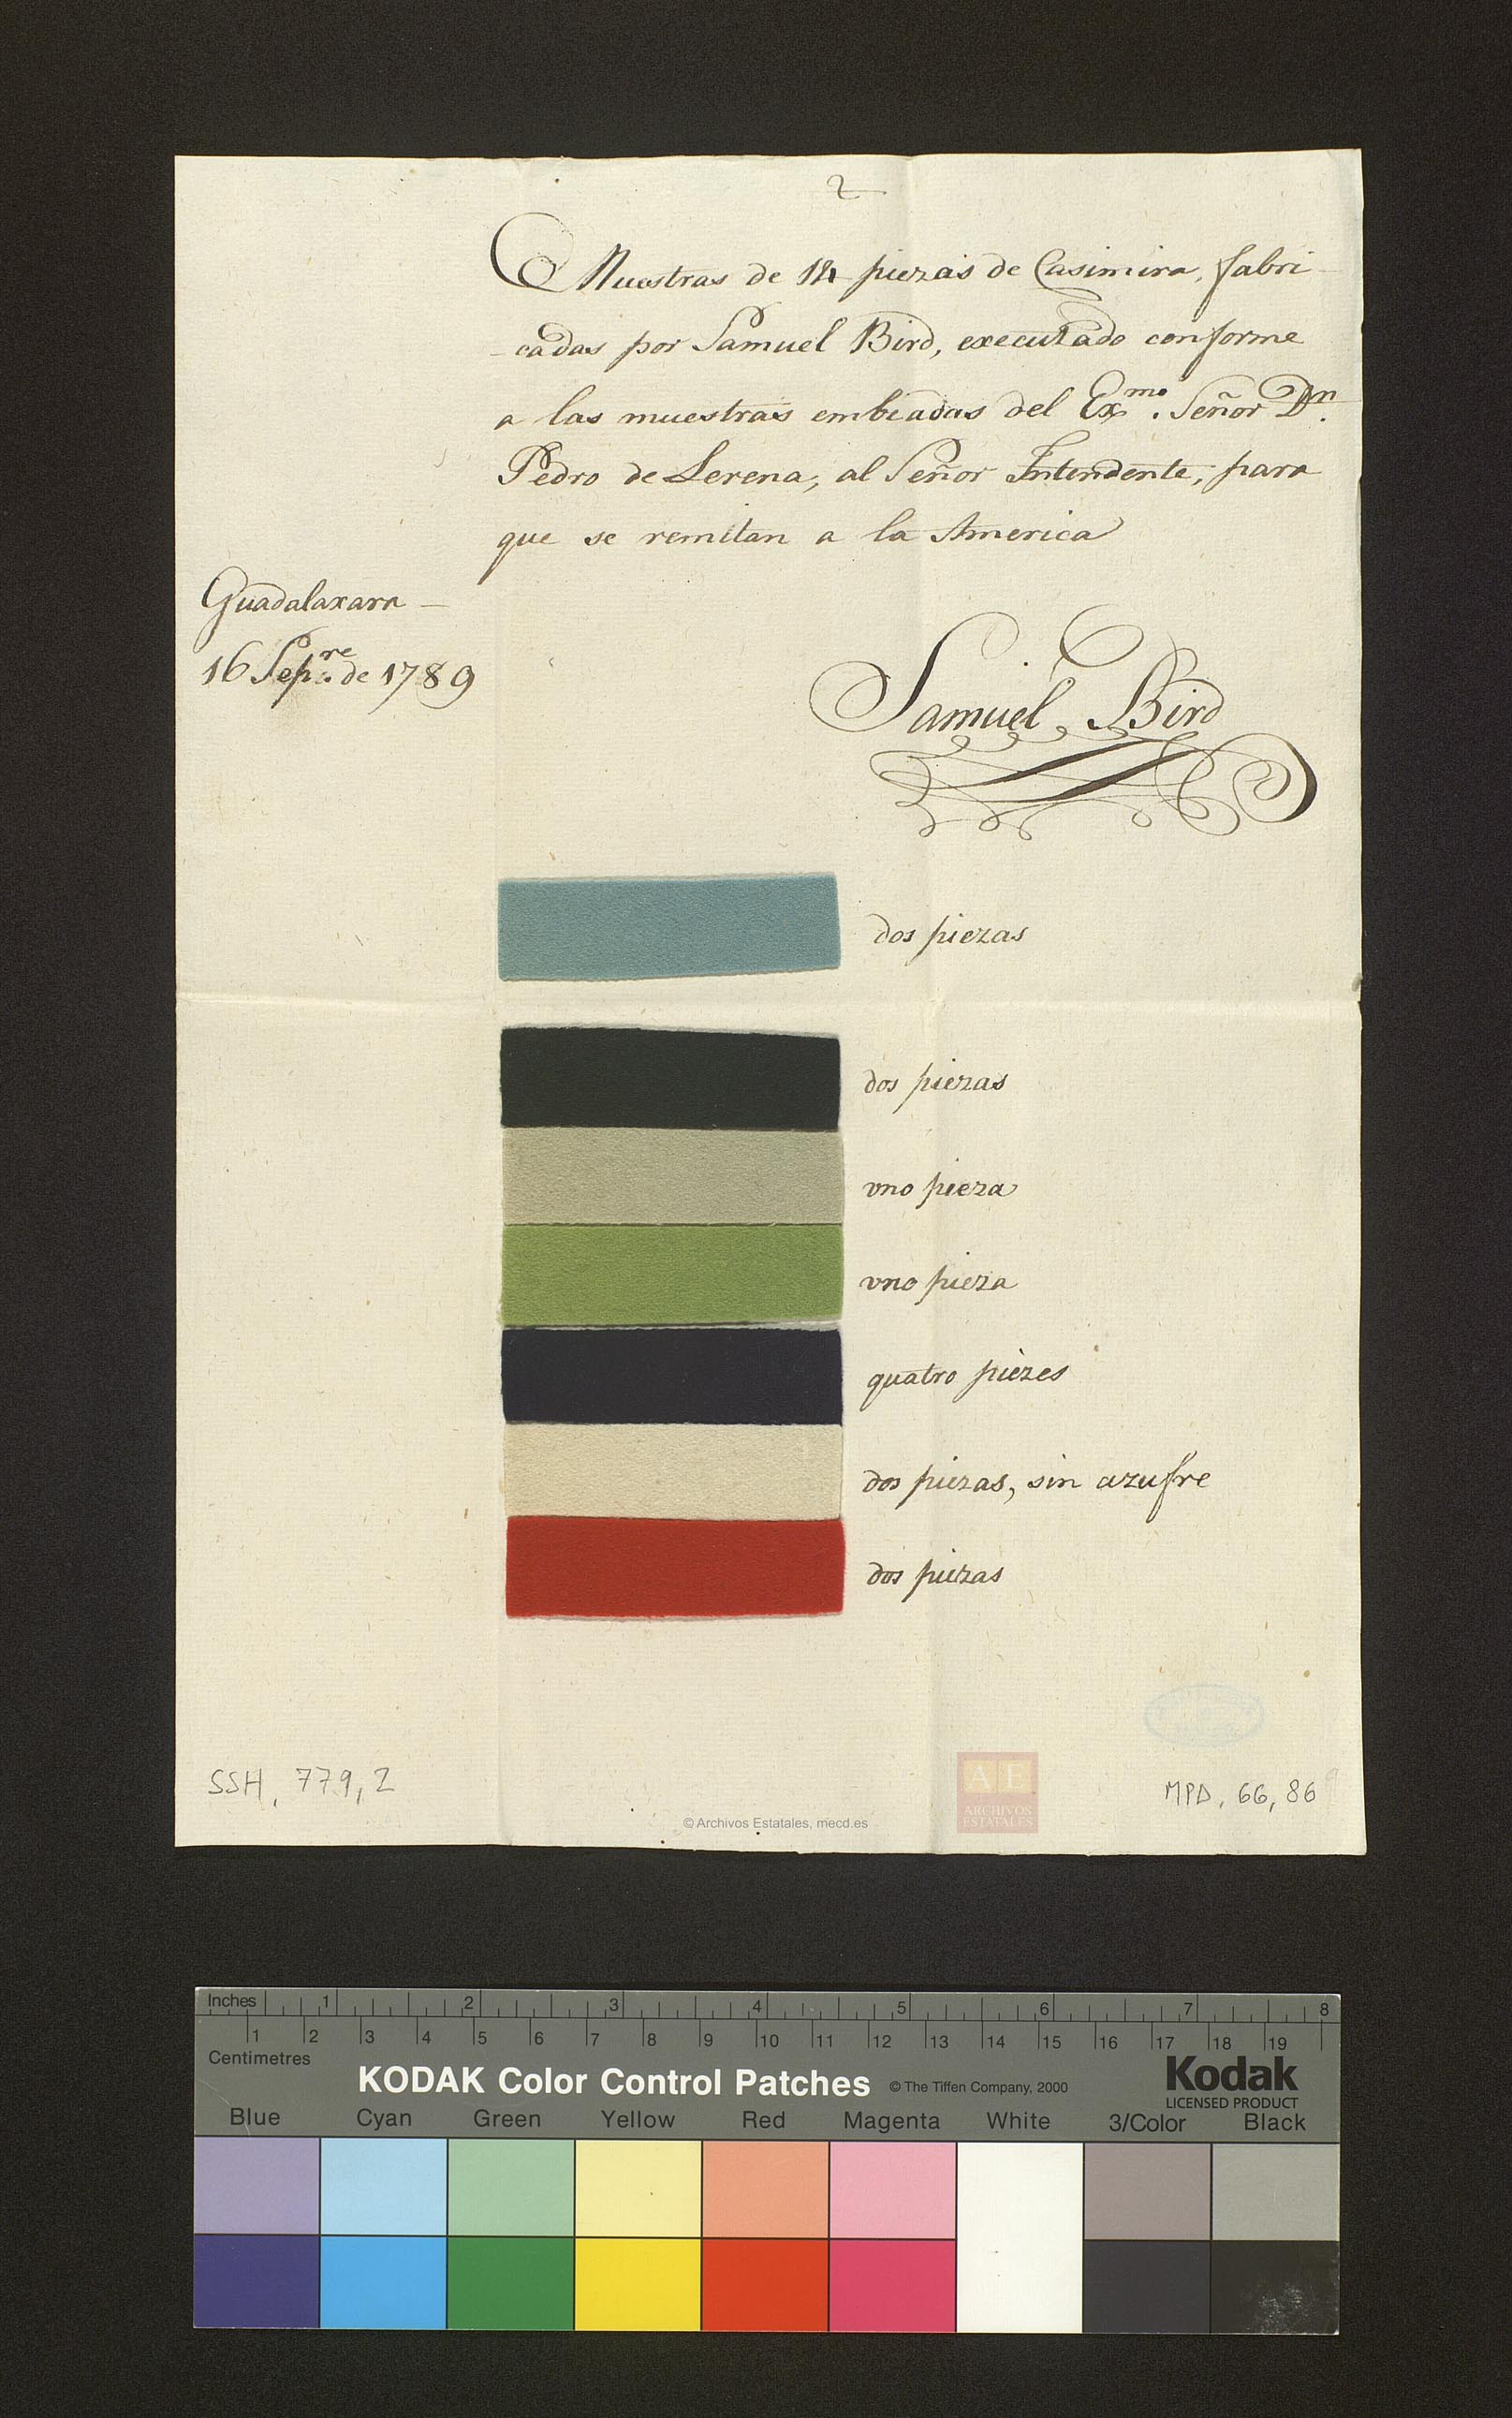 2
Muestras de 14 piezas de Casimira, fabri-
-cadas por Samuel Bird, executado conforme
a las muestras embiadas del Exmo. Señor Dn.
Pedro de Lerena, al Señor Intendente, para
que se remitan a la America
Guadalaxara -
16 Sepre. de 1789
Samuel Bird
dos piezas
dos piezas
vno pieza
vno pieza
quatro piezes
dos piezas, sin azufre
dos piezas
SSH, 779, 2
MPD, 66, 86
AE
ARCHIVOS
ESTATALES
© Archivos Estatales, mecd.es
Inches 1 2 3 4 5 6 7 8
1 2 3 4 5 6 7 8 9 10 11 12 13 14 15 16 17 18 19
Centimetres
KODAK Color Control Patches © The Tiffen Company, 2000
Kodak
LICENSED PRODUCT
Blue Cyan Green Yellow Red Magenta White 3/Color Black